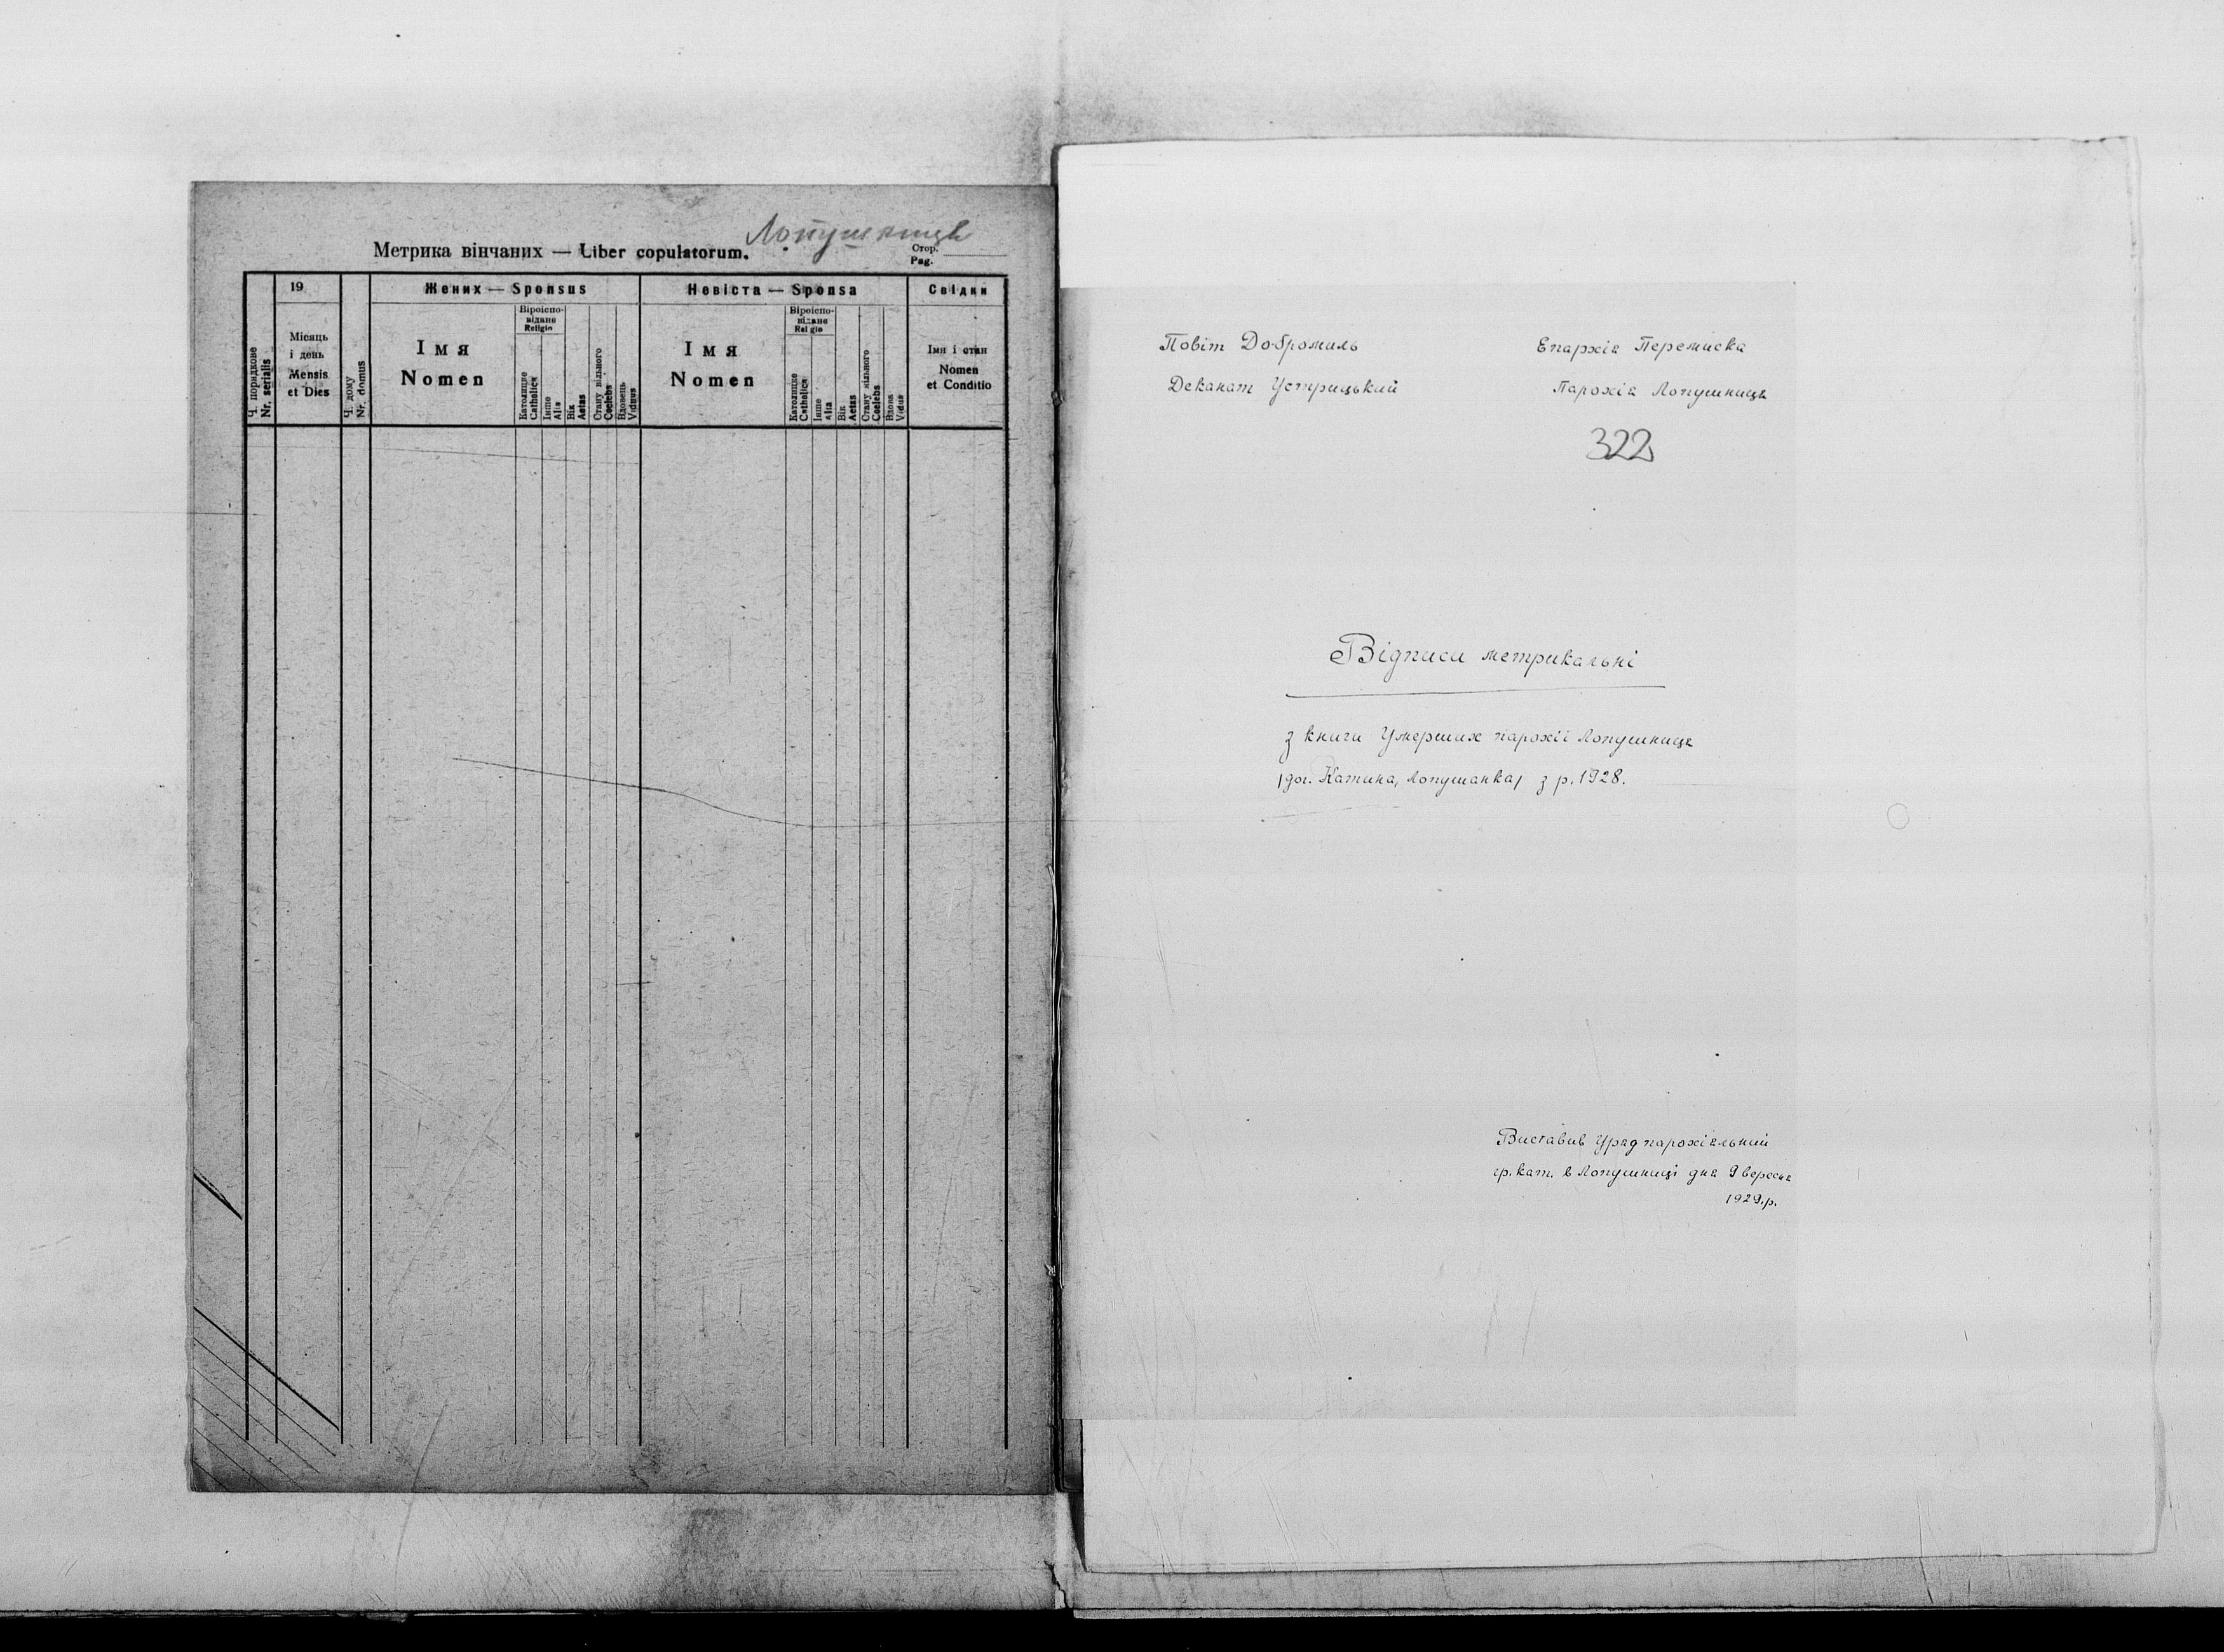 Лопушниця
Метрика вінчаних — Liber copulatorum.
Стор.
Pag.
Ч. порядкове
Nr. serialis
19
Місяць
і день
Mensis
et Dies
Ч. дому
Nr. domus
Жених — Sponsus
Імя
Nomen
Віроіспо-
відане
Religio
Католицке
Catholica
Інше
Alia
Вік
Aetas
Стану вільного
Coelebs
Вдовець
Viduus
Невіста — Sponsa
Імя
Nomen
Віроіспо-
відане
Religio
Католицке
Catholica
Інше
Alia
Вік
Aetas
Стану вільного
Coelebs
Вдова
Vidua
Свідки
Імя і стан
Nomen
et Conditio
Повіт Добромиль
Деканат Устрицький
Епархія Перемиска
Парохія Лопушниця
322
Відписи метрикальні
з книги Умерших парохії Лопушниця
/дог. Катина, Лопушанка/ з р. 1928.
Виставив Уряд парохіяльний
гр. кат. в Лопушниці дня 9 вересня
1929.р.